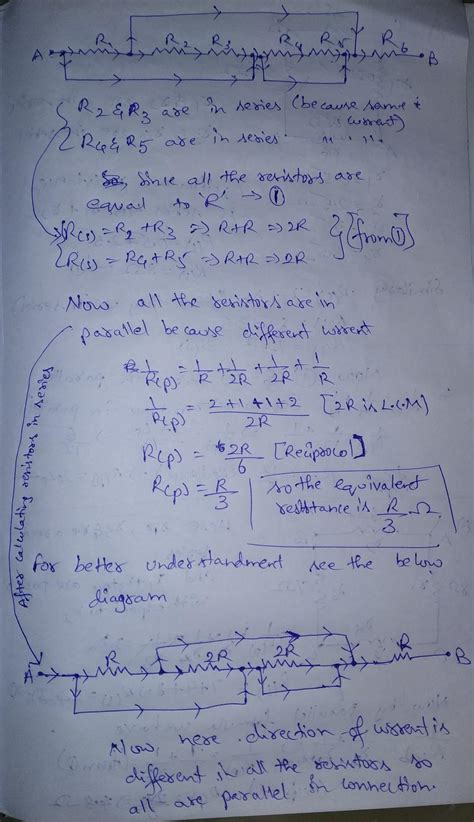 A R1 R2 R3 R4 R5 R6 B
R2 & R3 are in series (because same
current)
R4 & R5 are in series " " ".
Since all the resistors are
equal to 'R' → ①
R(s) = R2 + R3 ⇒ R+R ⇒ 2R
R(s) = R4 + R5 ⇒ R+R ⇒ 2R } [from ①]
Now all the resistors are in
parallel because different current
1/R(p) = 1/R + 1/2R + 1/2R + 1/R
1/R(p) = 2+1+1+2 / 2R [2R is L.C.M]
R(p) = 2R/6 [Reciprocal]
R(p) = R/3
so the equivalent
resistance is R/3 Ω
After calculating resistors in series
For better understandment see the below
diagram
A R 2R 2R R B
Now, here direction of current is
different in all the resistors so
all are parallel in connection.